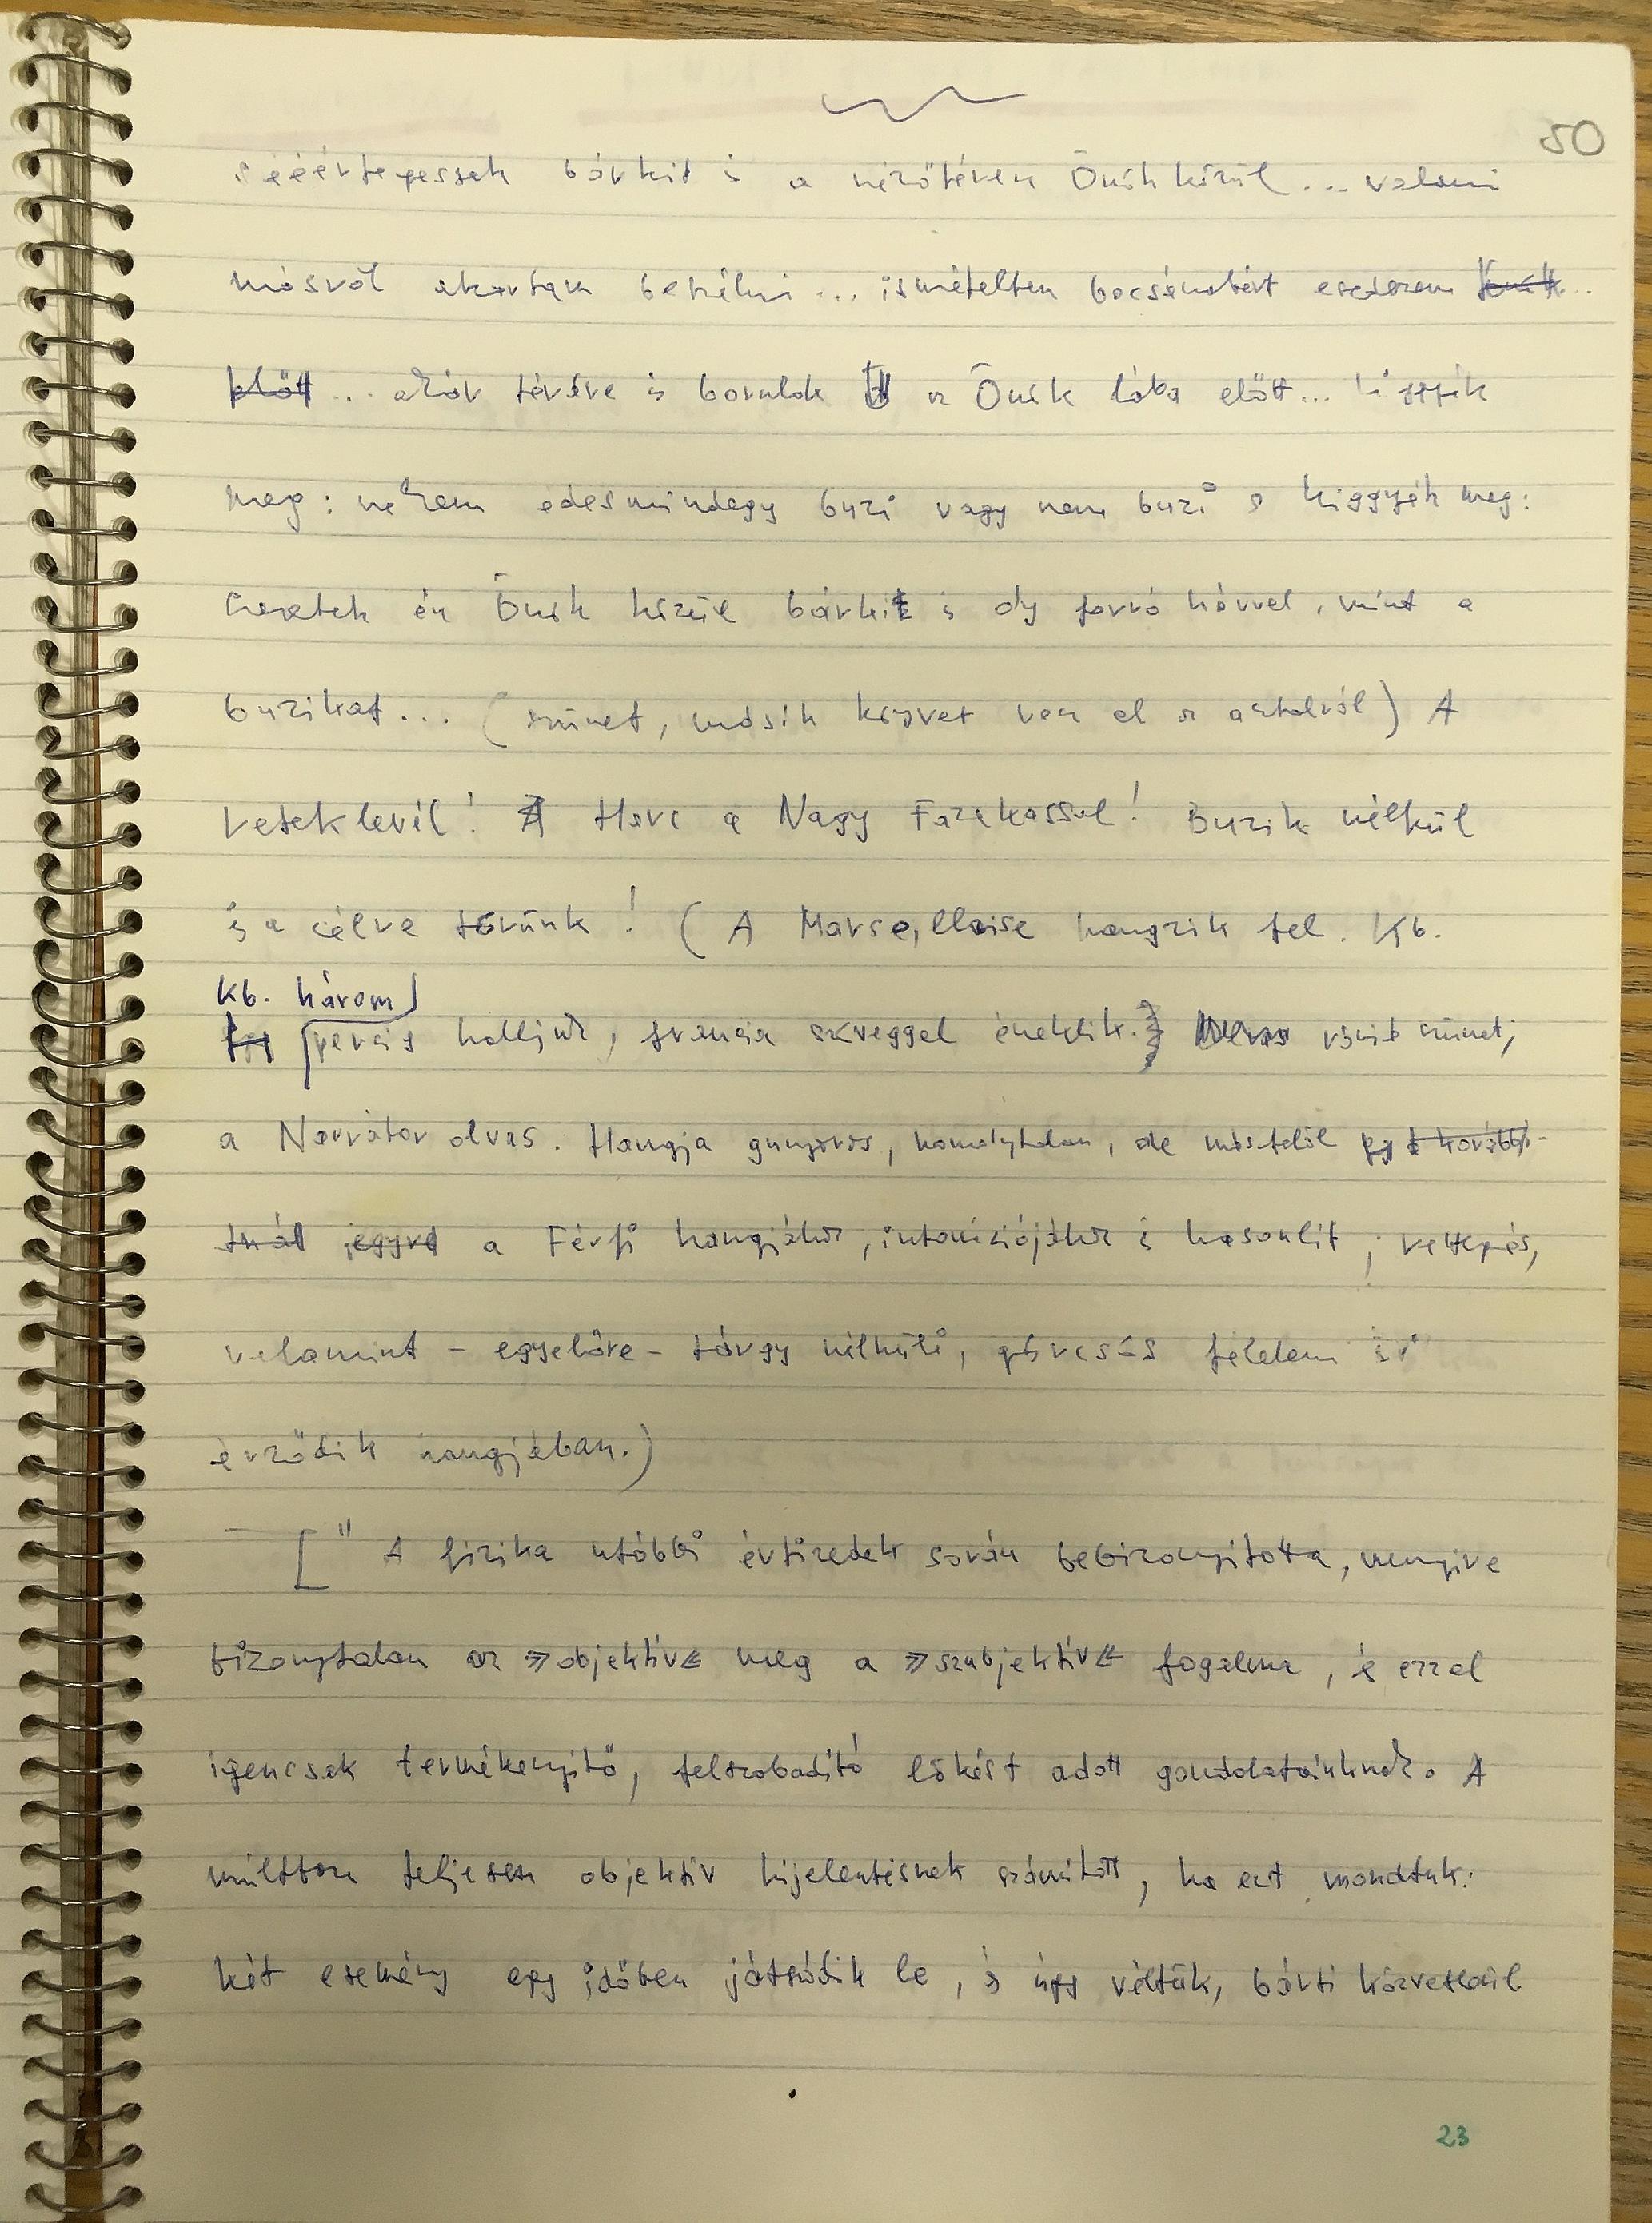 50
sértegessek bárkit is a nézőtéren Önök közül... valami
másról akartam beszélni... ismételten bocsánatért esedezem
előtt... akár térdre is borulok az Önök lába előtt... higgyék
meg: nekem édesmindegy buzi vagy nem buzi s higgyék meg:
szeretek én Önök közül bárkit is oly forró hévvel, mint a
buzikat... (szünet, másik könyvet vesz el az asztalról) A
veteklevél! Harc a Nagy Fazekassal! Buzik nélkül
is a célra törünk! (A Marseillaise hangzik fel. Kb.
Kb. három
percig halljuk, francia szöveggel éneklik. rövid szünet;
a Narrátor olvas. Hangja gunyoros, komolytalan, de másfelől
tnál egyre a Férfi hangjához, intonációjához is hasonlít; rettegés,
valamint - egyelőre - tárgy nélküli, görcsös félelem is
érződik hangjában.)
["A fizika utóbbi évtizedek során bebizonyította, mennyire
bizonytalan az »objektív« meg a »szubjektív« fogalma, és ezzel
igencsak termékenyítő, felszabadító lökést adott gondolatainknak. A
múltban teljesen objektív kijelentésnek számított, ha ezt mondtuk:
két esemény egy időben játszódik le, és úgy véltük, bárki közvetlenül
23